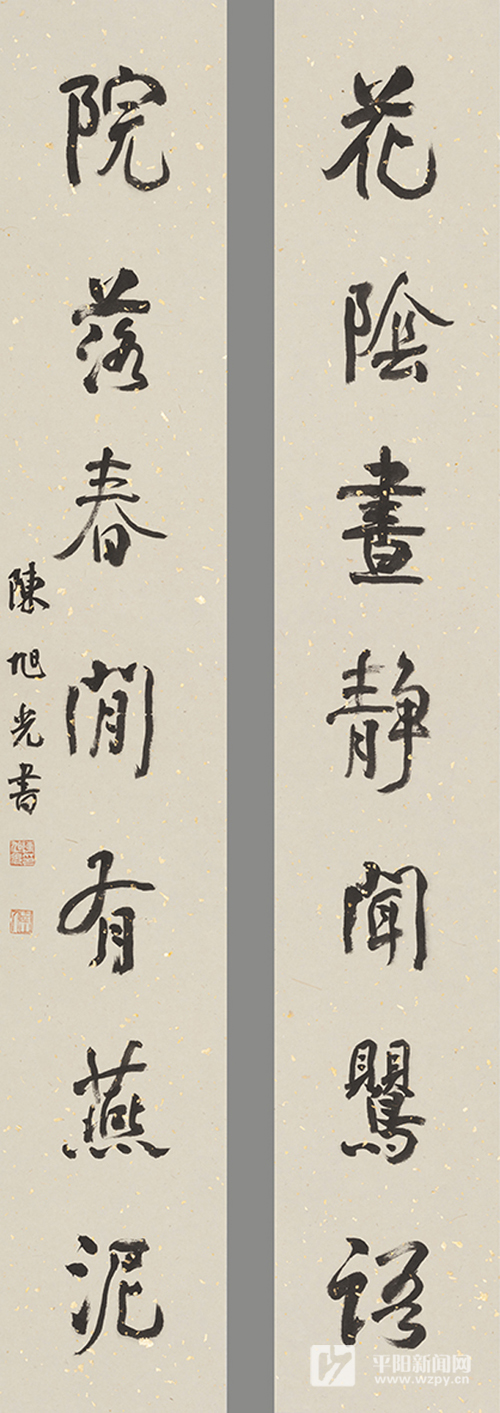 花陰晝靜聞鸎語
院落春閒有燕泥
陳旭光書
平阳新闻网
www.wzpy.cn